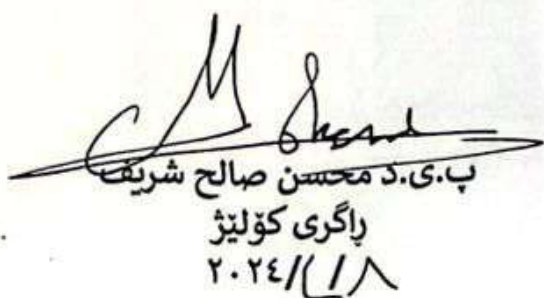 پ.ی.د محسن صالح شریف
ڕاگری کۆلێژ
٢٠٢٤/ /٨